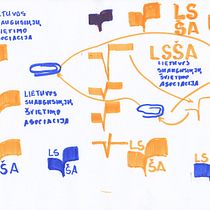 LIETUVOS
SUAUGUSIŲJŲ
ŠVIETIMO
ASOCIACIJA
LS
ŠA
LSŠA
LIETUVOS
SUAUGUSIŲJŲ
ŠVIETIMO
ASOCIACIJA
LIETUVOS
SUAUGUSIŲJŲ
ŠVIETIMO
ASOCIACIJA
ŠA
LS
ŠA
LS
ŠA